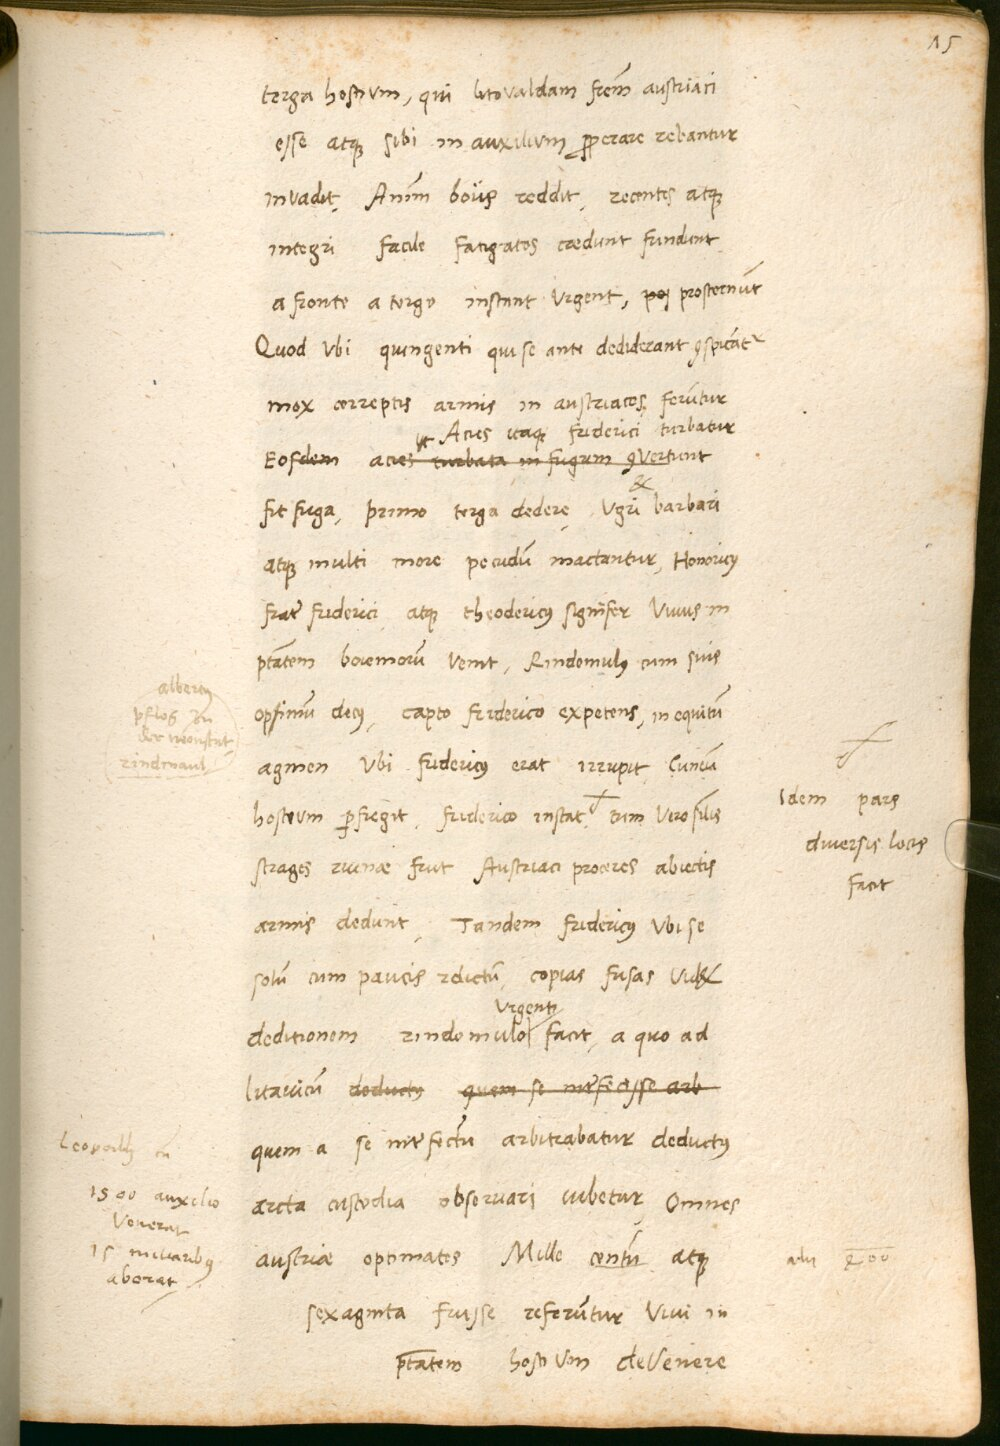 15
terga hostium, qui litovaldam frem̃ austriaci
esse atq; sibi in auxilium ꝓperare rebantur
invadit, Anim̃ boiis reddit, recentes atq;
integri facile fatigatos cedunt fundunt
a fronte a tergo instant urgent, prosternũt
Quod ubi quingenti qui se ante dediderant ꝯspicãt᷑
mox correptis armis in austriacos ferũtur
Acies itaq; friderici turbatur
Eosdem acies turbata in fugam ꝯvertunt
&
fit fuga, primo terga dedere, Ugri barbari
atq; multi more pecudũ mactantur, Honoricꝰ
frat̃ friderici atq; theodericꝰ signifer vivus in
ptãtem boiemorũ venit, Rindomulꝰ cum suis
opsimũ decꝰ, capto friderico expetens, in equitũ
agmen ubi fridericꝰ erat irrupit Cuneũ
hostium ꝑfregit, friderico instat, tum vero sĩlis
strages ruinæ fuit Austriaci proceres abiectis
armis dedunt, Tandem fridericꝰ ubi se
solũ cum paucis rdictũ, copias fusas videt
urgenti
deditionem rindomulo facit, a quo ad
litavicũ deductꝰ quem se int̃fecisse arb
quem a se int̃fectũ arbitrabatur deductꝰ
arcta custodia observari iubetur, Omnes
austriæ optimates Mille centũ atq;
sexaginta fuisse referũtur vivi in
ptãtem hostium devenere
albertꝰ
pflog zu
der neunstat
rindmaul
Idem pars
diversis locis
facit
Leopoldꝰ cũ
1500 auxilio
venerat
15 miliaribꝰ
aberat
alii 200